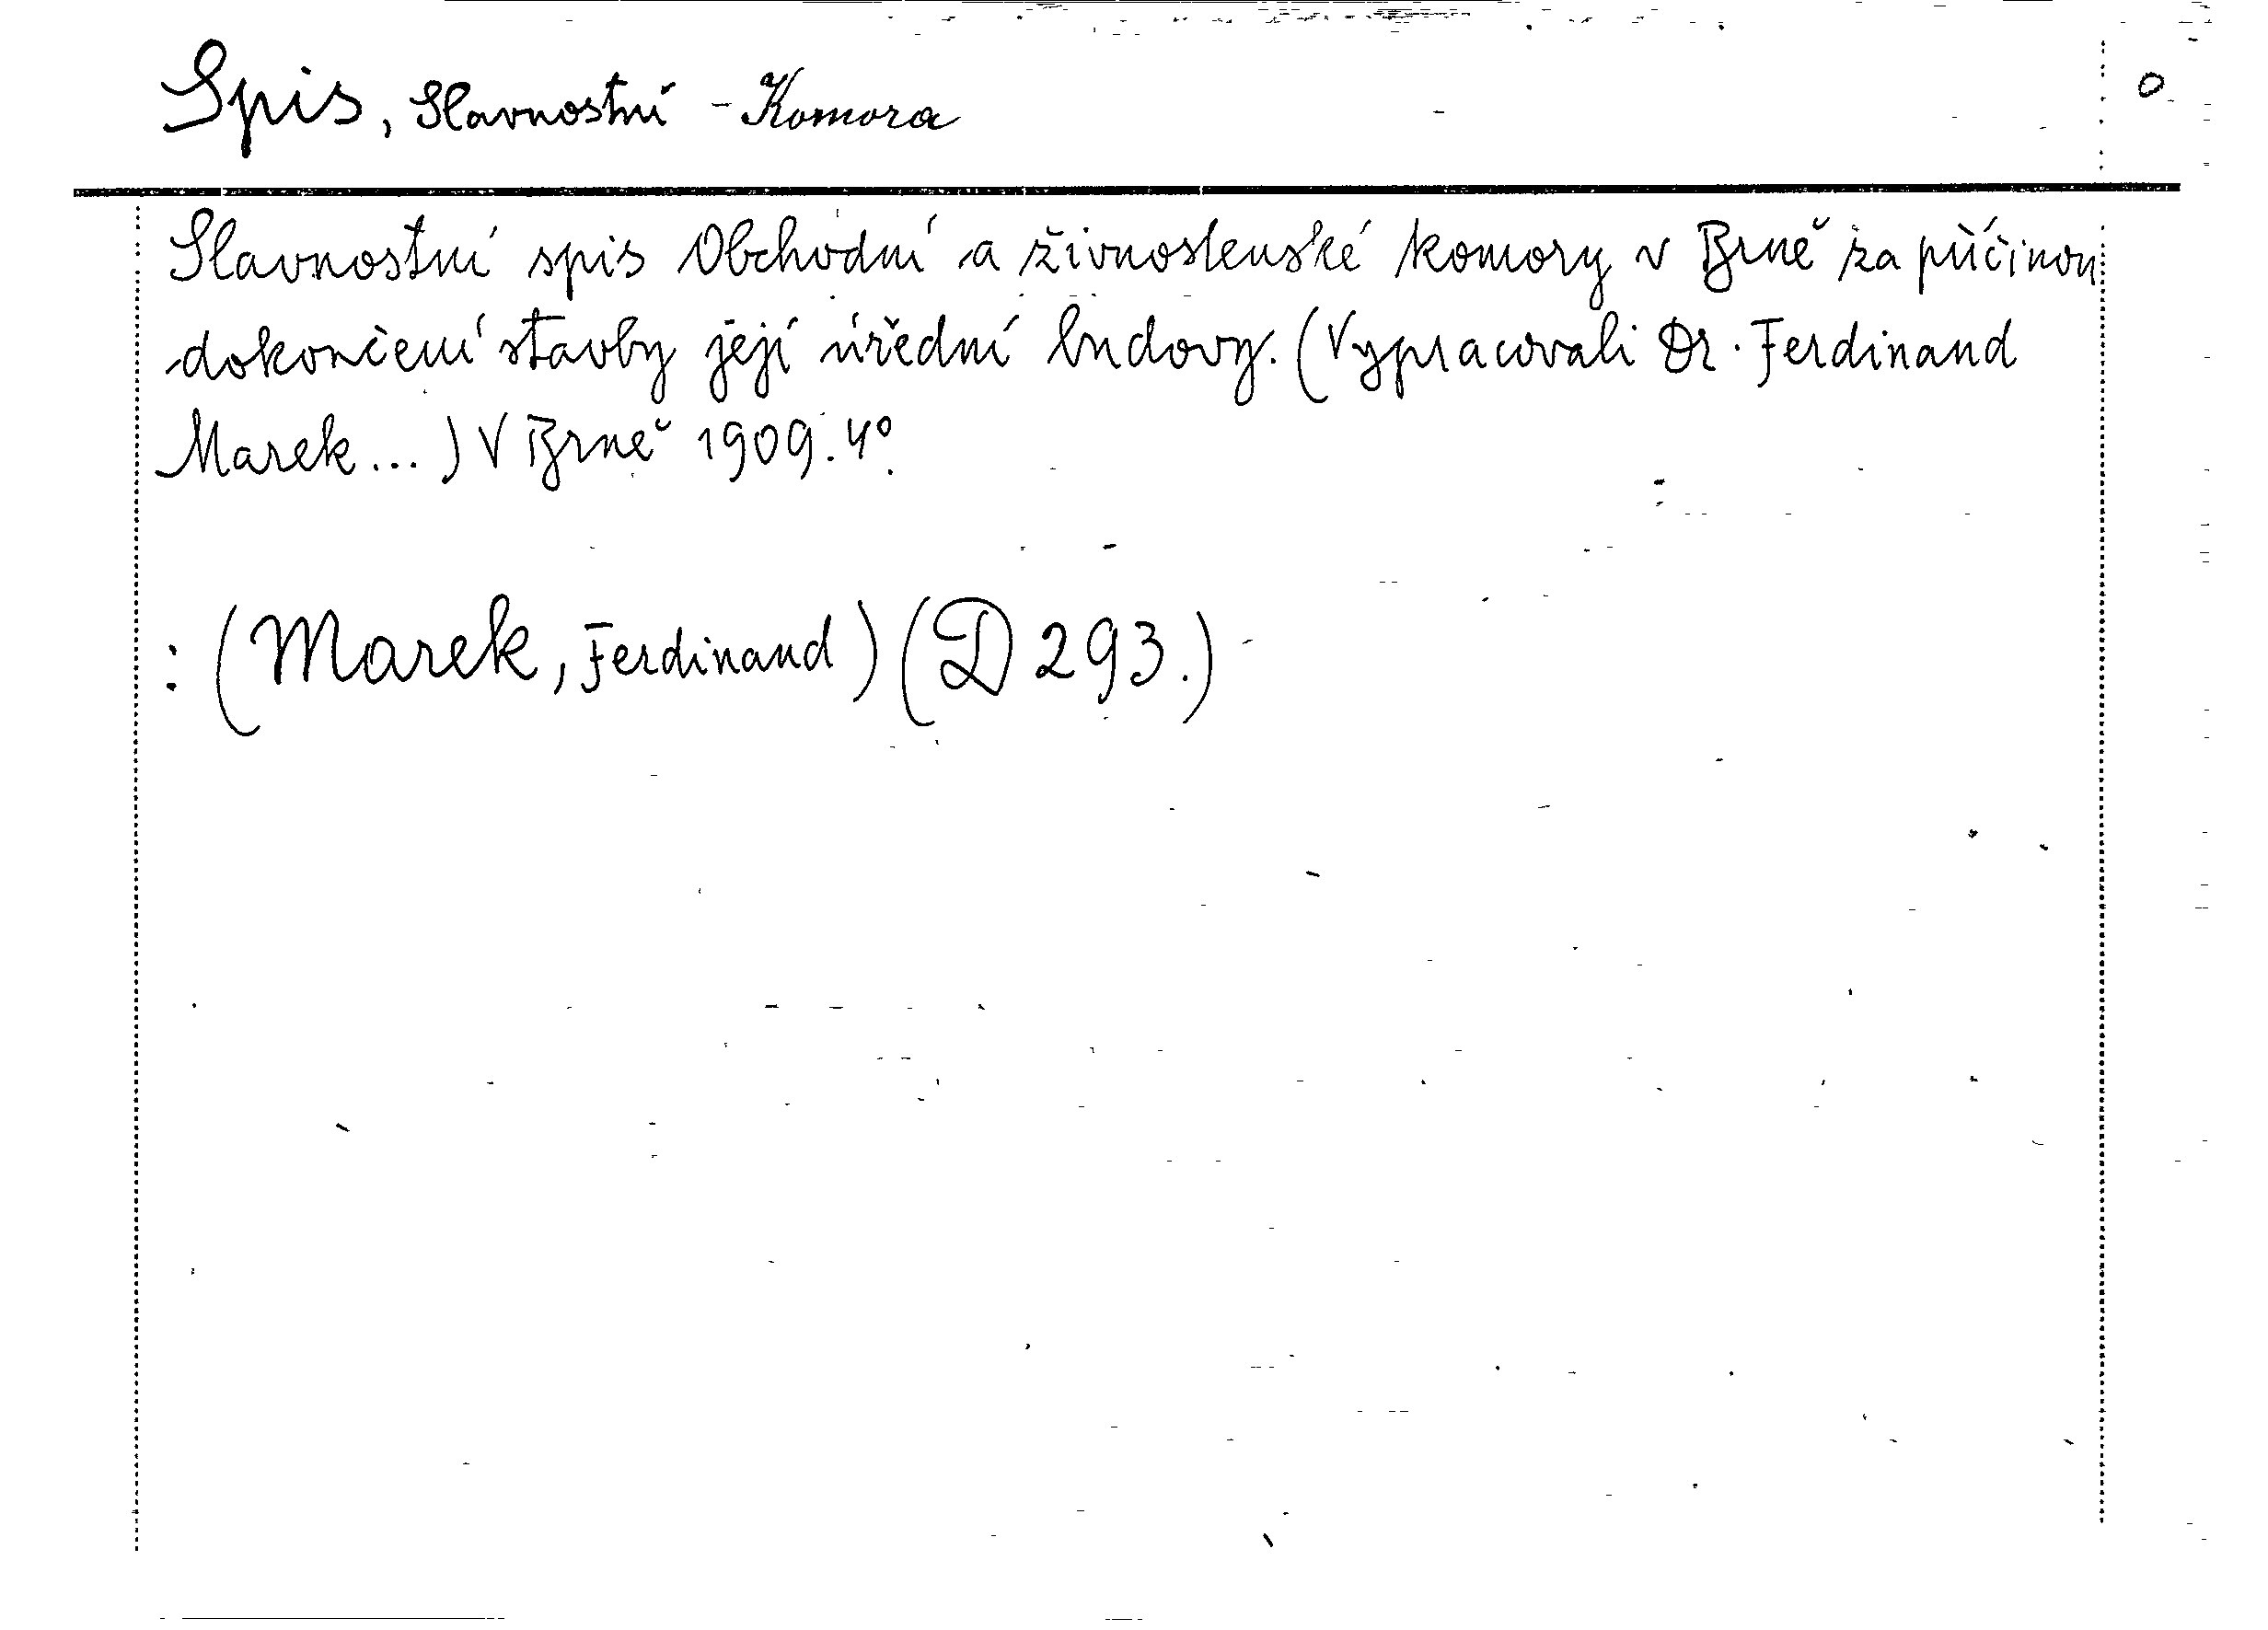 Spis, Slavnostní - Komora
o
Slavnostní spis Obchodní a živnostenské komory v Brně za příčinou
dokončení stavby její úřední budovy. (Vypracovali Dr. Ferdinand
Marek...) V Brně 1909. 4°.
: (Marek, Ferdinand) (D 293.)